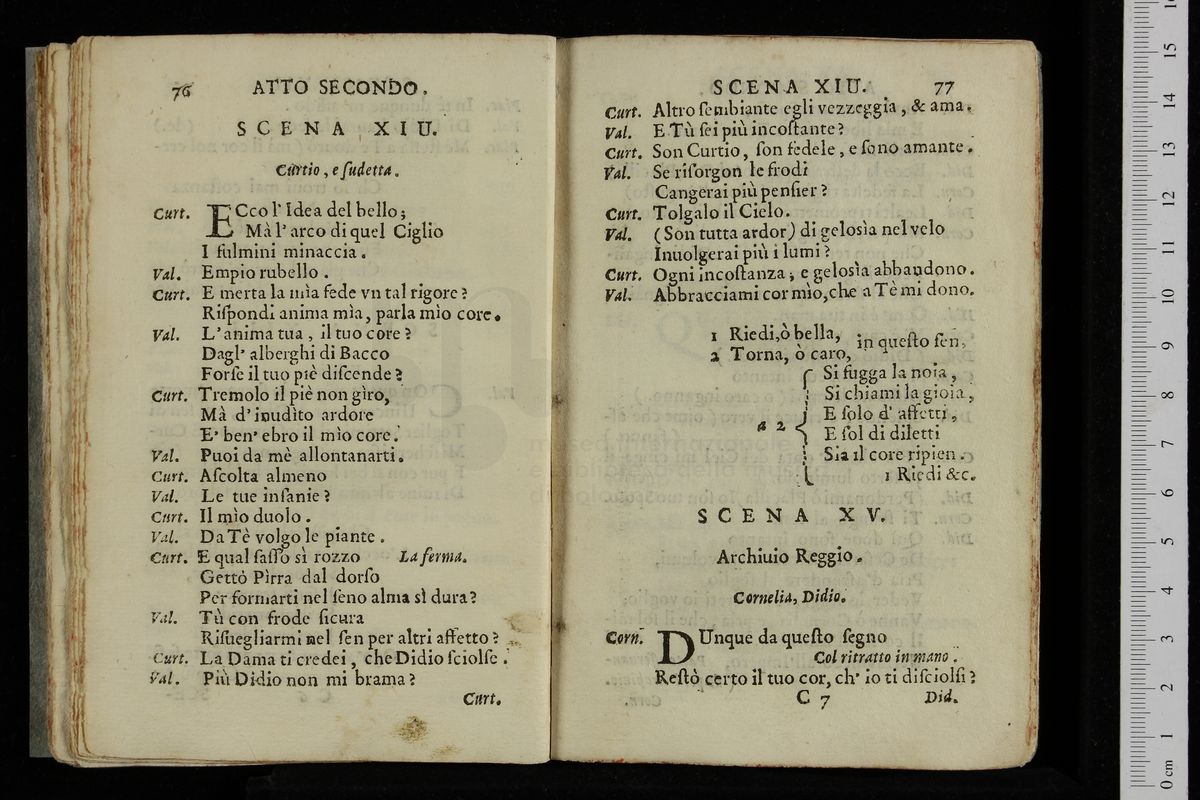 76 ATTO SECONDO.
SCENA XIU.
Curtio, e ſudetta.
Curt. ECco l' Idea del bello;
Mà l' arco di quel Ciglio
I fulmini minaccia.
Val. Empio rubello.
Curt. E merta la mìa fede vn tal rigore?
Riſpondi anima mìa, parla mìo core.
Val. L' anima tua, il tuo core?
Dagl' alberghi di Bacco
Forſe il tuo piè diſcende?
Curt. Tremolo il piè non gìro,
Mà d' inudìto ardore
E' ben' ebro il mìo core.
Val. Puoi da mè allontanarti.
Curt. Aſcolta almeno
Val. Le tue inſanie?
Curt. Il mìo duolo.
Val. Da Tè volgo le piante.
Curt. E qual ſaſſo sì rozzo La ferma.
Gettò Pìrra dal dorſo
Per formarti nel ſeno alma sì dura?
Val. Tù con frode ſicura
Riſuegliarmi nel ſen per altri affetto?
Curt. La Dama ti credei, che Didio ſciolſe.
Val. Più Didio non mi brama?
Curt.
SCENA XIU. 77
Curt. Altro ſembiante egli vezzeggia, & ama.
Val. E Tù ſei più incoſtante?
Curt. Son Curtio, ſon fedele, e ſono amante.
Val. Se riſorgon le frodi
Cangerai più penſier?
Curt. Tolgalo il Cielo.
Val. (Son tutta ardor) di gelosìa nel velo
Inuolgerai più i lumi?
Curt. Ogni incoſtanza, e gelosìa abbandono.
Val. Abbracciami cor mìo, che a Tè mi dono.
1 Riedi, ò bella,
2 Torna, ò caro, in queſto ſen,
Si fugga la noia,
Si chiami la gioia,
a 2 E ſolo d' affetti,
E ſol di diletti
Sia il core ripien.
1 Riedi &c.
SCENA XV.
Archiuio Reggio.
Cornelia, Didio.
Corn. DUnque da queſto ſegno
Col ritratto in mano.
Reſtò certo il tuo cor, ch' io ti diſciolſi?
C 7 Did.